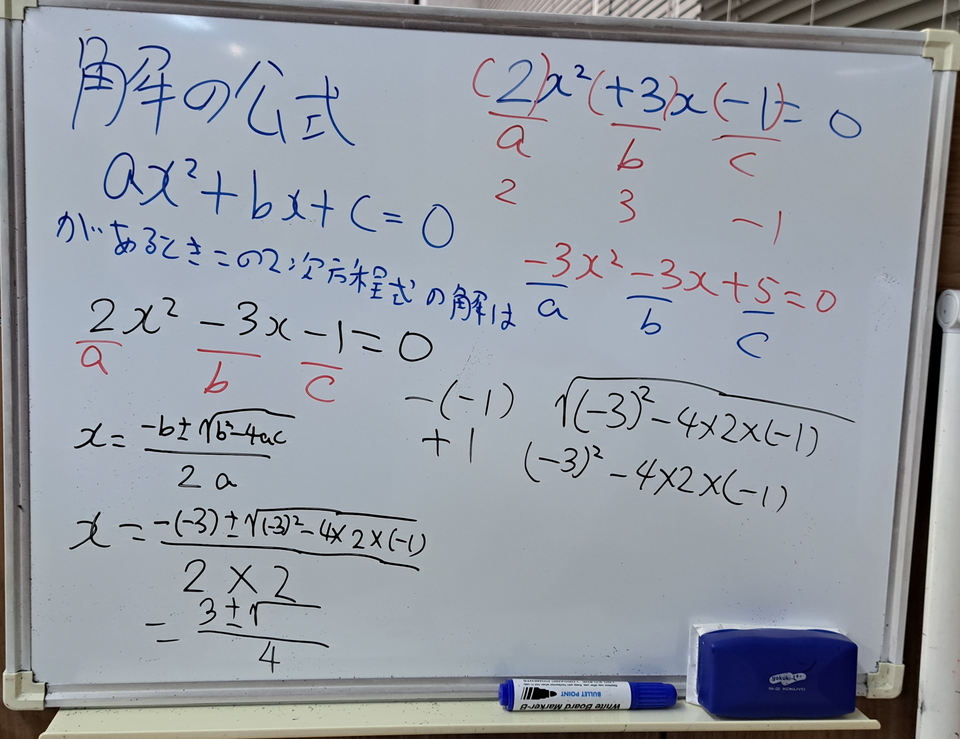 解の公式
ax²+bx+c=0
があるときこの2次方程式の解は
2x²-3x-1=0
a b c
x=(-b±√(b²-4ac))/(2a)
x=(-(-3)±√((-3)²-4×2×(-1)))/(2×2)
=(3±√ )/4
(2)x²(+3)x(-1)=0
a b c
2 3 -1
-3x²-3x+5=0
a b c
-(-1)
+1
√((-3)²-4×2×(-1))
(-3)²-4×2×(-1)
BULLET POINT
White Board Marker-B
KOKUYO